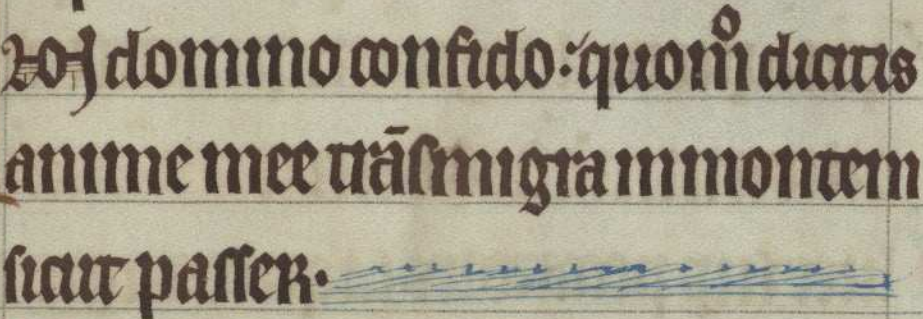 domino confido: quom̊ dicitis
anime mee trãsmigra in montem
sicut passer.